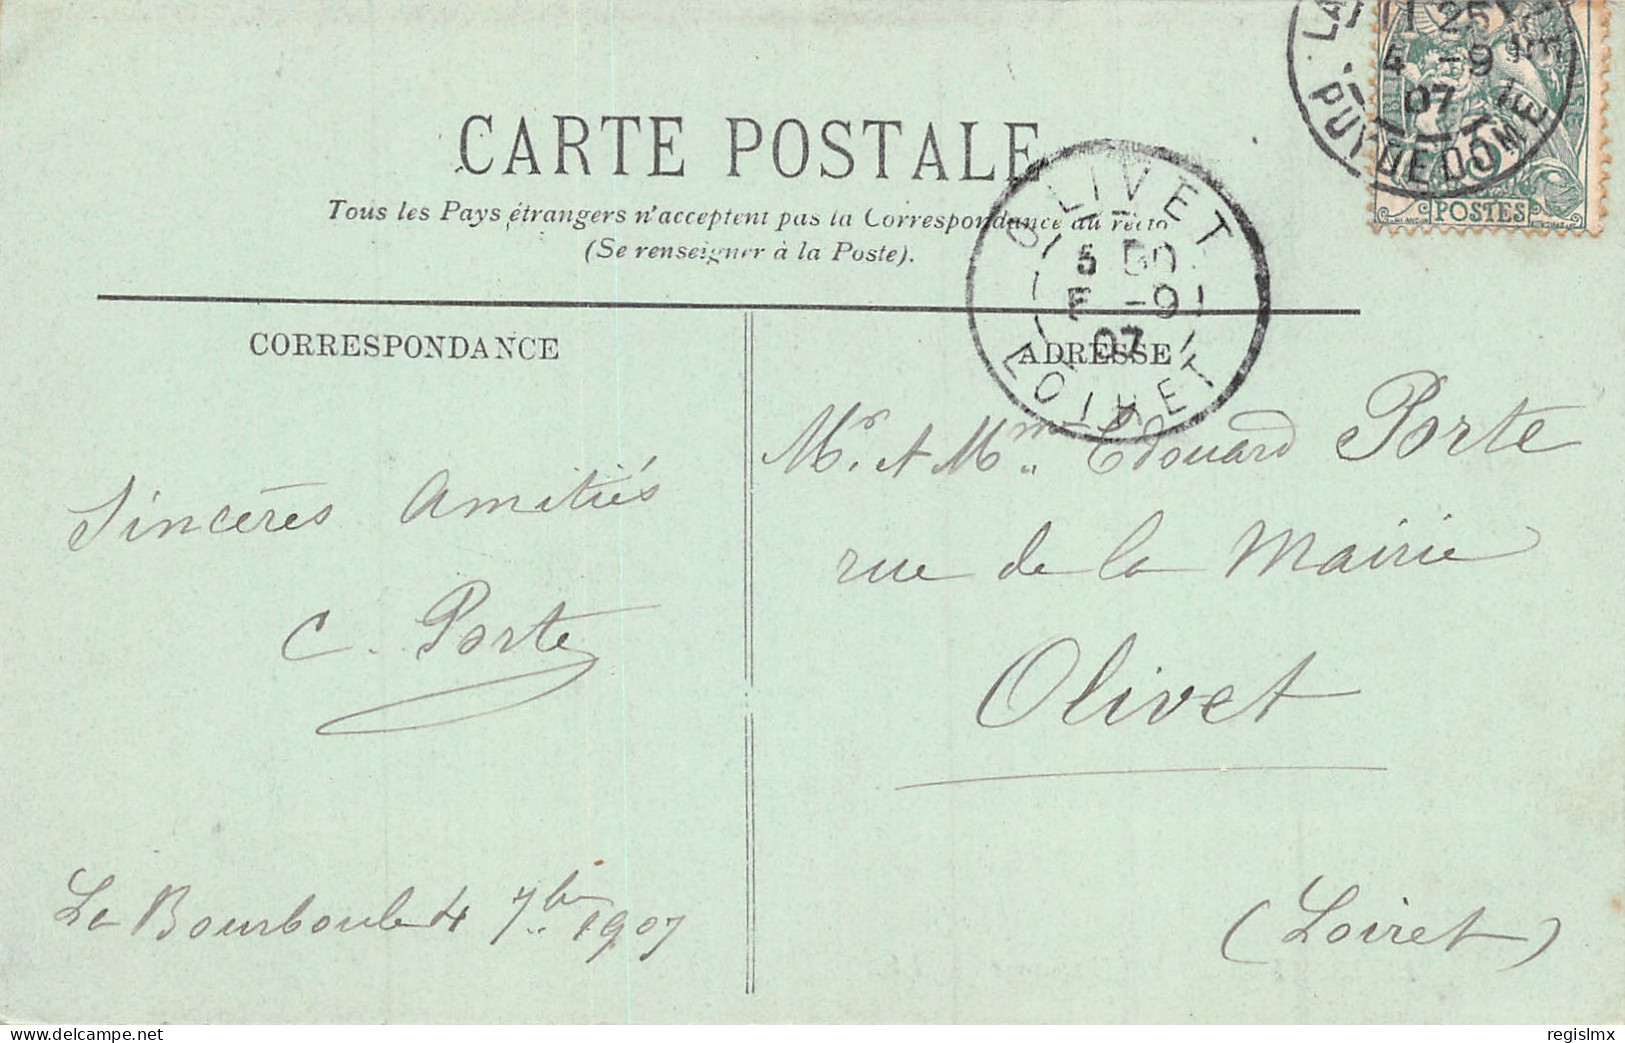 CARTE POSTALE
Tous les Pays étrangers n'acceptent pas la Correspondance au recto
(Se renseigner à la Poste).
CORRESPONDANCE
Sincères amitiés
C. Porte
La Bourboule 4 7bre 1907
ADRESSE
Mr. et Mme. Edouard Porte
rue de la Mairie
Olivet
(Loiret)
OLIVET
5
-9
07
LOIRET
LA
25
4 -9
07
PUY DE DÔME
POSTES
www.delcampe.net
regislmx